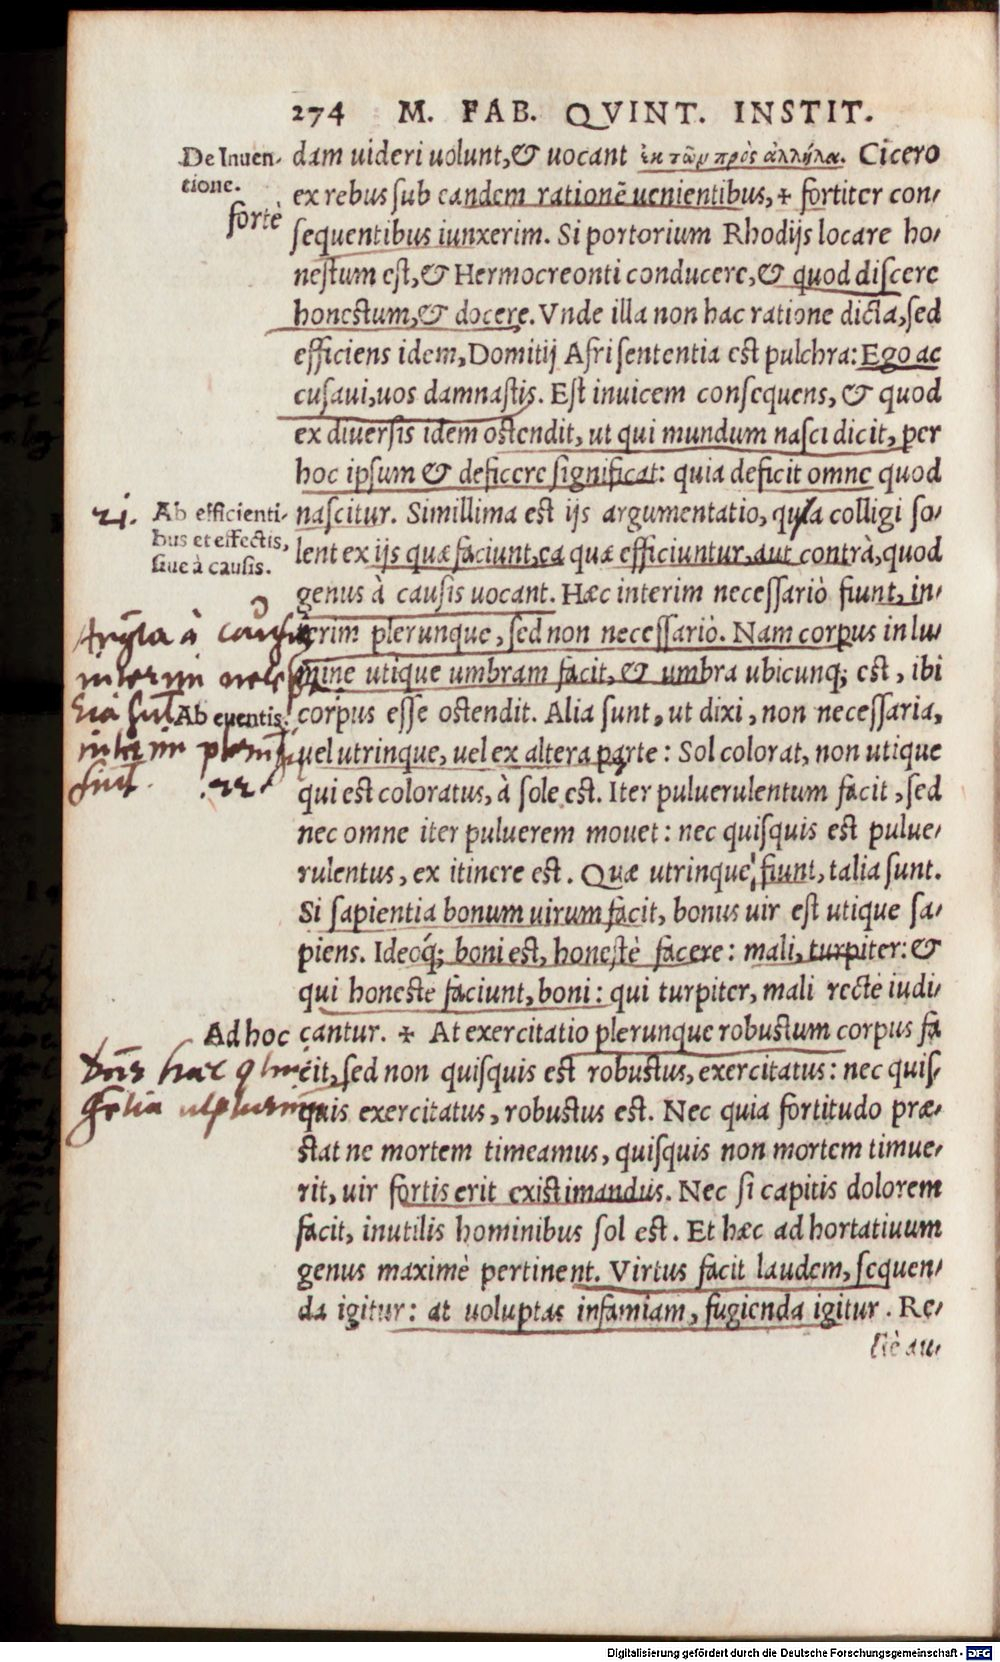 274 M. FAB. QVINT. INSTIT.
De Inuen-
tione.
fortè
dam uideri uolunt, & uocant ἐκ τῶν πρὸς ἄλληλα. Cicero
ex rebus sub eandem rationẽ uenientibus, + fortiter con-
sequentibus iunxerim. Si portorium Rhodijs locare ho-
nestum est, & Hermocreonti conducere, & quod discere
honestum, & docere. Vnde illa non hac ratione dicta, sed
efficiens idem, Domitij Afri sententia est pulchra: Ego ac
cusaui, uos damnastis. Est inuicem consequens, & quod
ex diuersis idem ostendit, ut qui mundum nasci dicit, per
hoc ipsum & deficere significat: quia deficit omne quod
21. Ab efficienti-
bus et effectis,
siue à causis.
nascitur. Simillima est ijs argumentatio, quæ colligi so-
lent ex ijs quæ faciunt, ea quæ efficiuntur, aut contrà, quod
genus à causis uocant. Hæc interim necessariò fiunt, in-
terim plerunque, sed non necessariò. Nam corpus in lu-
mine utique umbram facit, & umbra ubicunq; est, ibi
Ab euentis.
22
corpus esse ostendit. Alia sunt, ut dixi, non necessaria,
uel utrinque, uel ex altera parte: Sol colorat, non utique
qui est coloratus, à sole est. Iter puluerulentum facit, sed
nec omne iter puluerem mouet: nec quisquis est pulue-
rulentus, ex itinere est. Quæ utrinque fiunt, talia sunt.
Si sapientia bonum uirum facit, bonus uir est utique sa-
piens. Ideoq́; boni est, honestè facere: mali, turpiter: &
qui honeste faciunt, boni: qui turpiter, mali rectè iudi-
Ad hoc
cantur. + At exercitatio plerunque robustum corpus fa
cit, sed non quisquis est robustus, exercitatus: nec quis-
quis exercitatus, robustus est. Nec quia fortitudo præ-
stat ne mortem timeamus, quisquis non mortem timue-
rit, uir fortis erit existimandus. Nec si capitis dolorem
facit, inutilis hominibus sol est. Et hæc ad hortatiuum
genus maximè pertinent. Virtus facit laudem, sequen-
da igitur: at uoluptas infamiam, fugienda igitur. Re-
ctè au-
Digitalisierung gefördert durch die Deutsche Forschungsgemeinschaft - DFG